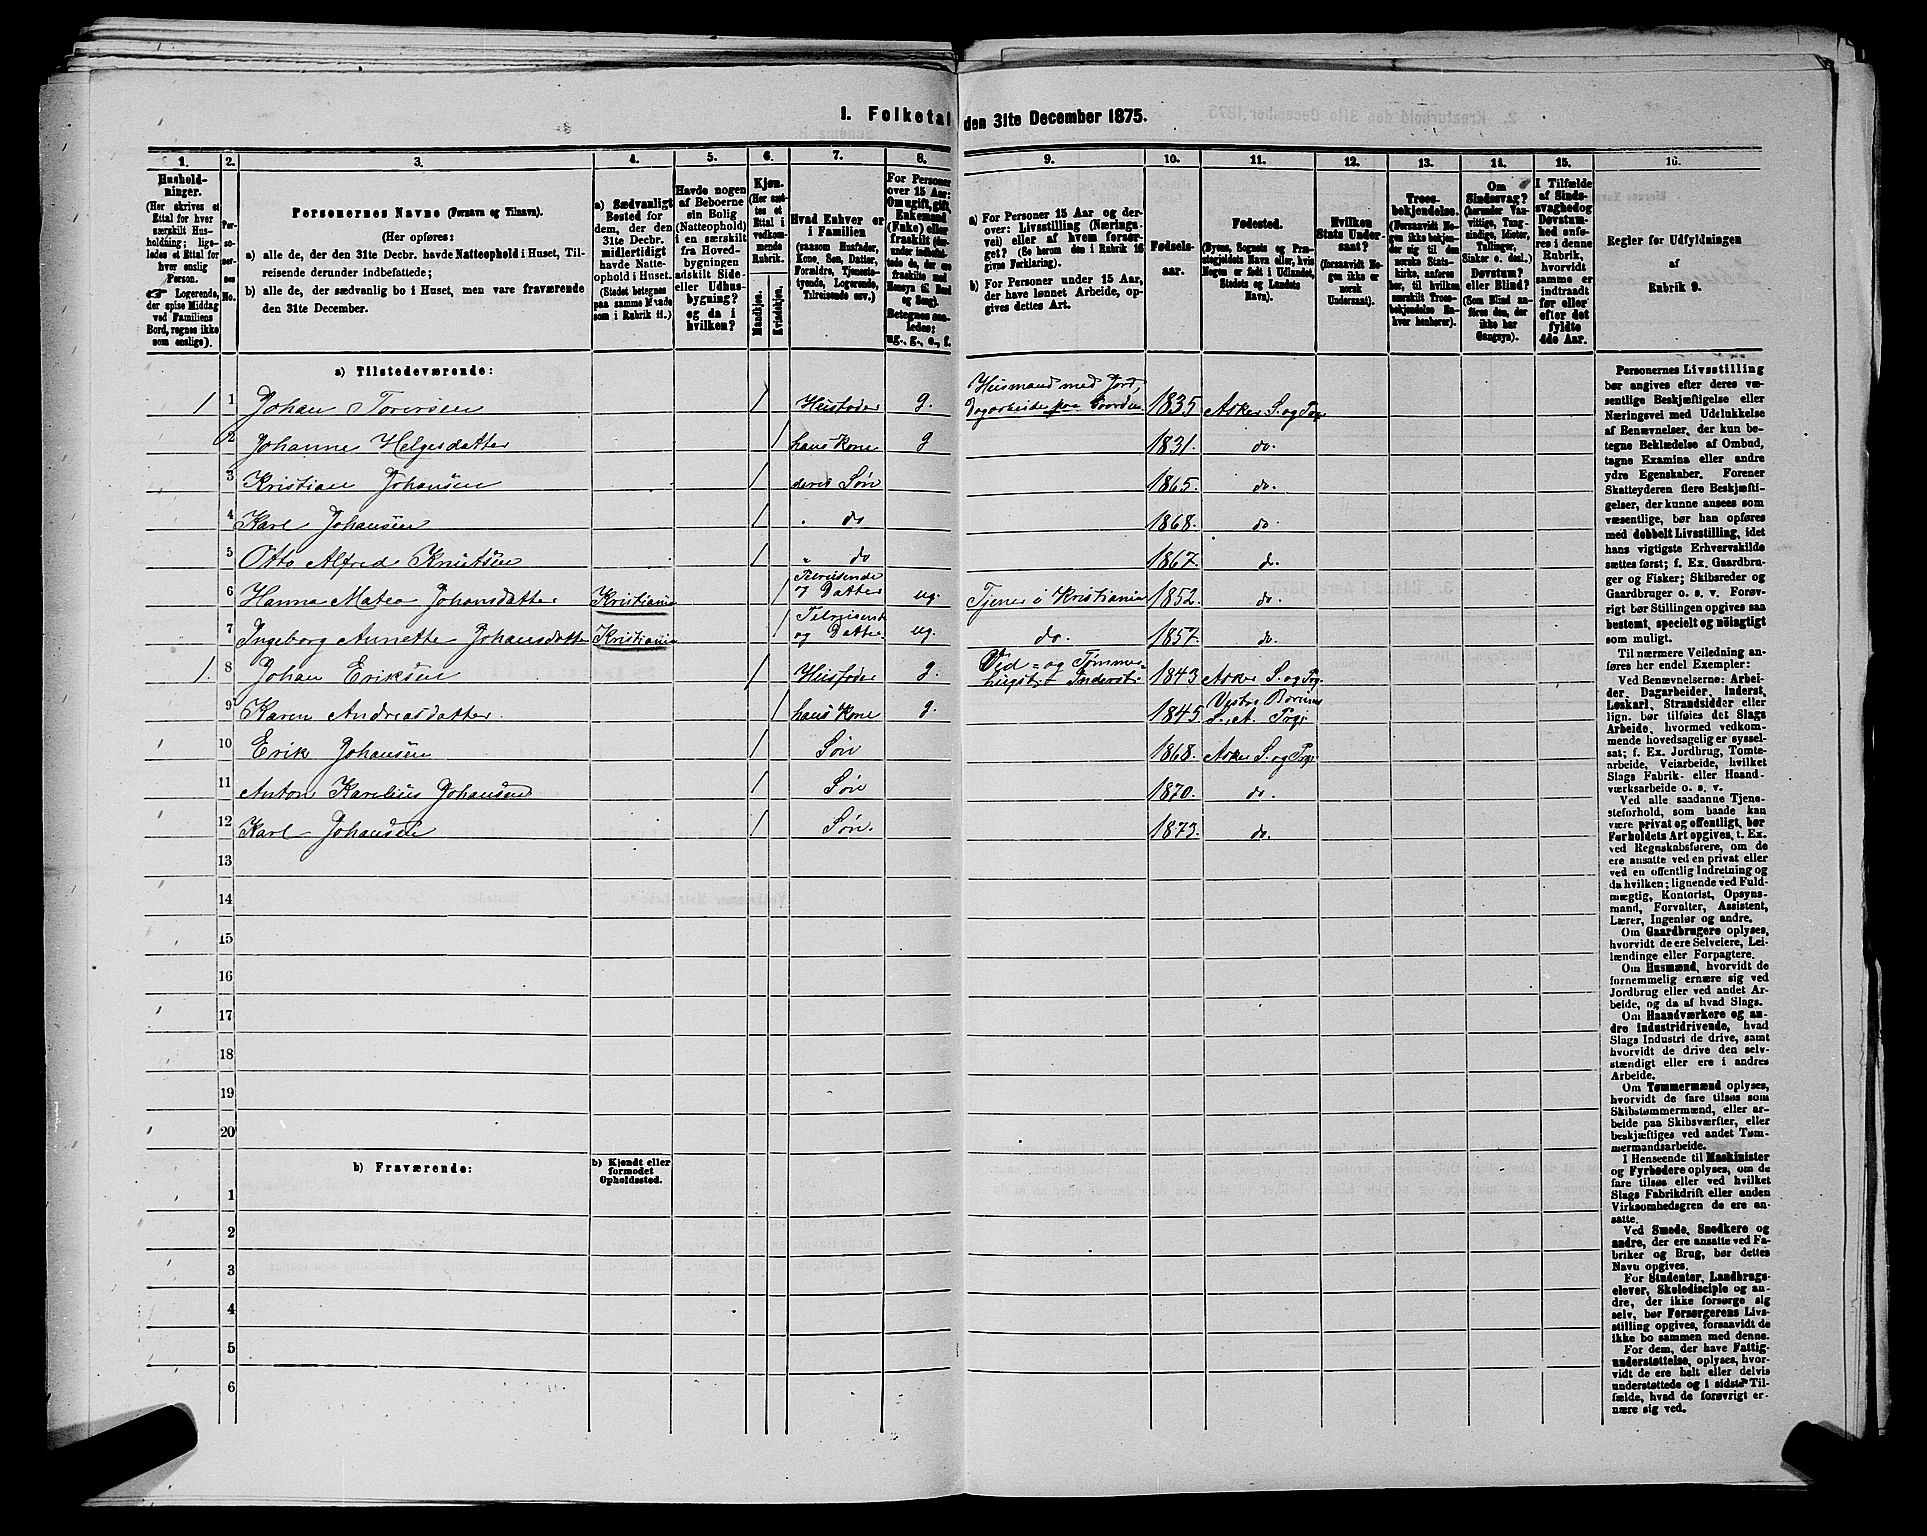 1. Folketal den 31te December 1875.
1. 2. 3. 4. 5. 6. 7. 8. 9. 10. 11. 12. 13. 14. 15. 16.
Hushold-
ninger.
(Her skrives et
Ettal for hver
særskilt Hus-
holdning; lige-
ledes et Ettal for
hver enslig
Person.
☞ Logerende,
der spise Middag
ved Familiens
Bord, regnes ikke
som enslige).
Per-
so-
ner-
nes
No.
Personernes Navne (Fornavn og Tilnavn).
(Her opføres:
a) alle de, der den 31te Decbr. havde Natteophold i Huset, Til-
reisende derunder indbefattede;
b) alle de, der sædvanlig bo i Huset, men vare fraværende
den 31te December.
a) Sædvanligt
Bosted for
dem, der den
31te Decbr.
midlertidigt
havde Natte-
ophold i Huset.
(Stedet betegnes
paa samme Maade
som i Rubrik 11.)
Havde nogen
af Beboerne
sin Bolig
(Natteophold)
i en særskilt
fra Hoved-
bygningen
adskilt Side-
eller Udhus-
bygning?
og da i
hvilken?
Kjøn.
(Her sæt-
tes et
Ettal i
vedkom-
mende
Rubrik.
Mandkjøn.
Kvindekjøn.
Hvad Enhver er
i Familien
(saasom Husfader,
Kone, Søn, Datter,
Forældre, Tjeneste-
tyende, Logerende,
Tilreisende osv.)
For Personer
over 15 Aar:
Om ugift, gift,
Enkemand
(Enke) eller
fraskilt
Betegnes saa-
ledes:
ug., g., e., f.
a) For Personer 15 Aar og der-
over: Livsstilling (Nærings-
vei) eller af hvem forsør-
get. (Se herom den i Rubrik 16
givne Forklaring).
b) For Personer under 15 Aar,
der have lønnet Arbeide, op-
gives dettes Art.
Fødsels-
aar.
Fødested.
(Byens, Sognets og Præ-
stegjeldets Navn eller, hvis
Nogen er født i Udlandet,
Stedets og Landets
Navn).
Hvilken
Stats Under-
saat?
(forsaavidt No-
gen ikke er
norsk
Undersaat).
Troes-
bekjendelse.
(Forsaavidt No-
gen ikke bekjen-
der sig til den
norske Stats-
kirke, anføres
her, til hvilken
særskilt Troes-
bekjendelse En-
hver henhører).
Om
Sindssvag?
(herunder Van-
vittige, Tung-
sindige, Idioter,
Tullinger,
Sinker o. desl.)
Døvstum?
eller Blind?
(Som Blind an-
føres den, der
ikke har
Gangsyn).
I Tilfælde
af Sinds-
svaghed og
Døvstum-
hed anfø-
res i denne
Rubrik,
hvorvidt
samme er
indtraadt
før eller
efter det
fyldte
4de Aar.
Regler for Udfyldningen
af
Rubrik 9.
a) Tilstedeværende:
1 1 Johan Torersen 1 Husfader g. Husmand med Jord, Dagarbeide paa Gaarden 1835 Asker S. og Prg.
2 Johanne Helgesdatter 1 hans Kone g 1831. do.
3 Kristian Johansen 1 deres Søn 1865. do.
4 Karl Johansen 1 " do 1868. do.
5 Otto Alfred Knutsen 1 " do 1867. do.
6 Hanna Matea Johansdatter Kristiania 1 Tilreisende og Datter ug. Tjener i Kristiania 1852. do.
7 Ingeborg Annette Johansdatter Kristiania 1 Tilreisende og Datter ug. do. 1857. do.
1. 8 Johan Eriksen 1 Husfader g. Ved- og Tømmer-hugst. Inderst. 1843 Asker S. og Prg.
9 Karen Andreasdatter. 1 hans Kone g. 1845 Vestre Bærum S. A. Prgj.
10 Erik Johansen 1 Søn 1868. Asker S. og Prg.
11 Anton Karelius Johansen 1 Søn 1870. do.
12 Karl Johansen 1 Søn. 1873. do.
13
14
15
16
17
18
19
20
b) Fraværende:
b) Kjendt eller
formodet
Opholdssted.
1
2
3
4
5
6
Personernes Livsstilling
bør angives efter deres væ-
sentlige Beskjæftigelse eller
Næringsvei med Udelukkelse
af Benævnelser, der kun be-
tegne Beklædelse af Ombud,
tagne Examina eller andre
ydre Egenskaber. Forener
Skatteyderen flere Beskjæfti-
gelser, der kunne ansees som
væsentlige, bør han opføres
med dobbelt Livsstilling, idet
hans vigtigste Erhvervskilde
sættes først; f. Ex. Gaardbru-
ger og Fisker; Skibsreder og
Gaardbruger o. s. v. Forøv-
rigt bør Stillingen opgives saa
bestemt, specielt og nøiagtigt
som muligt.
Til nærmere Veiledning an-
føres her endel Exempler:
Ved Benævnelserne: Arbei-
der, Dagarbeider, Inderst,
Løskarl, Strandsidder eller
lign. bør tilføies det Slags
Arbeide, hvormed vedkom-
mende hovedsagelig er syssel-
sat; f. Ex. Jordbrug, Tomte-
arbeide, Veiarbeide, hvilket
Slags Fabrik- eller Haand-
værksarbeide o. s. v.
Ved alle saadanne Tjene-
steforhold, som baade kan
være privat og offentligt, bør
Forholdets Art opgives, t. Ex.
ved Regnskabsførere, om de
ere ansatte ved en privat eller
ved en offentlig Indretning og
da hvilken; lignende ved Fuld-
mægtig, Kontorist, Opsyns-
mand, Forvalter, Assistent,
Lærer, Ingeniør og andre.
Om Gaardbrugere oplyses,
hvorvidt de ere Selveiere, Lei-
lændinge eller Forpagtere.
Om Husmænd, hvorvidt de
fornemmelig ernære sig ved
Jordbrug eller ved andet Ar-
beide, og da af hvad Slags.
Om Haandværkere og an-
dre Industridrivende, hvad
Slags Industri de drive, samt
hvorvidt de drive den selv-
stændigt eller ere i andres
Arbeide.
Om Tømmermænd oplyses,
hvorvidt de fare tilsøs som
Skibstømmermænd, eller ar-
beide paa Skibsværfter, eller
beskjæftiges ved andet Tøm-
mermandsarbeide.
I Henseende til Maskinister
og Fyrbødere oplyses, om de
fare tilsøs eller ved hvilket
Slags Fabrikdrift eller anden
Virksomhedsgren de ere an-
satte.
Ved Smede, Snedkere og
andre, der ere ansatte ved Fa-
briker og Brug, bør dettes
Navn opgives.
For Studenter, Landbrugs-
elever, Skoledisciple og an-
dre, der ikke forsørge sig
selv, bør Forsørgerens Livs-
stilling opgives, forsaavidt de
ikke bo sammen med denne.
For dem, der have Fattig-
understøttelse, oplyses, hvor-
vidt de ere helt eller delvis
understøttede og i sidste Til-
fælde, hvad de forøvrigt er-
nære sig ved.